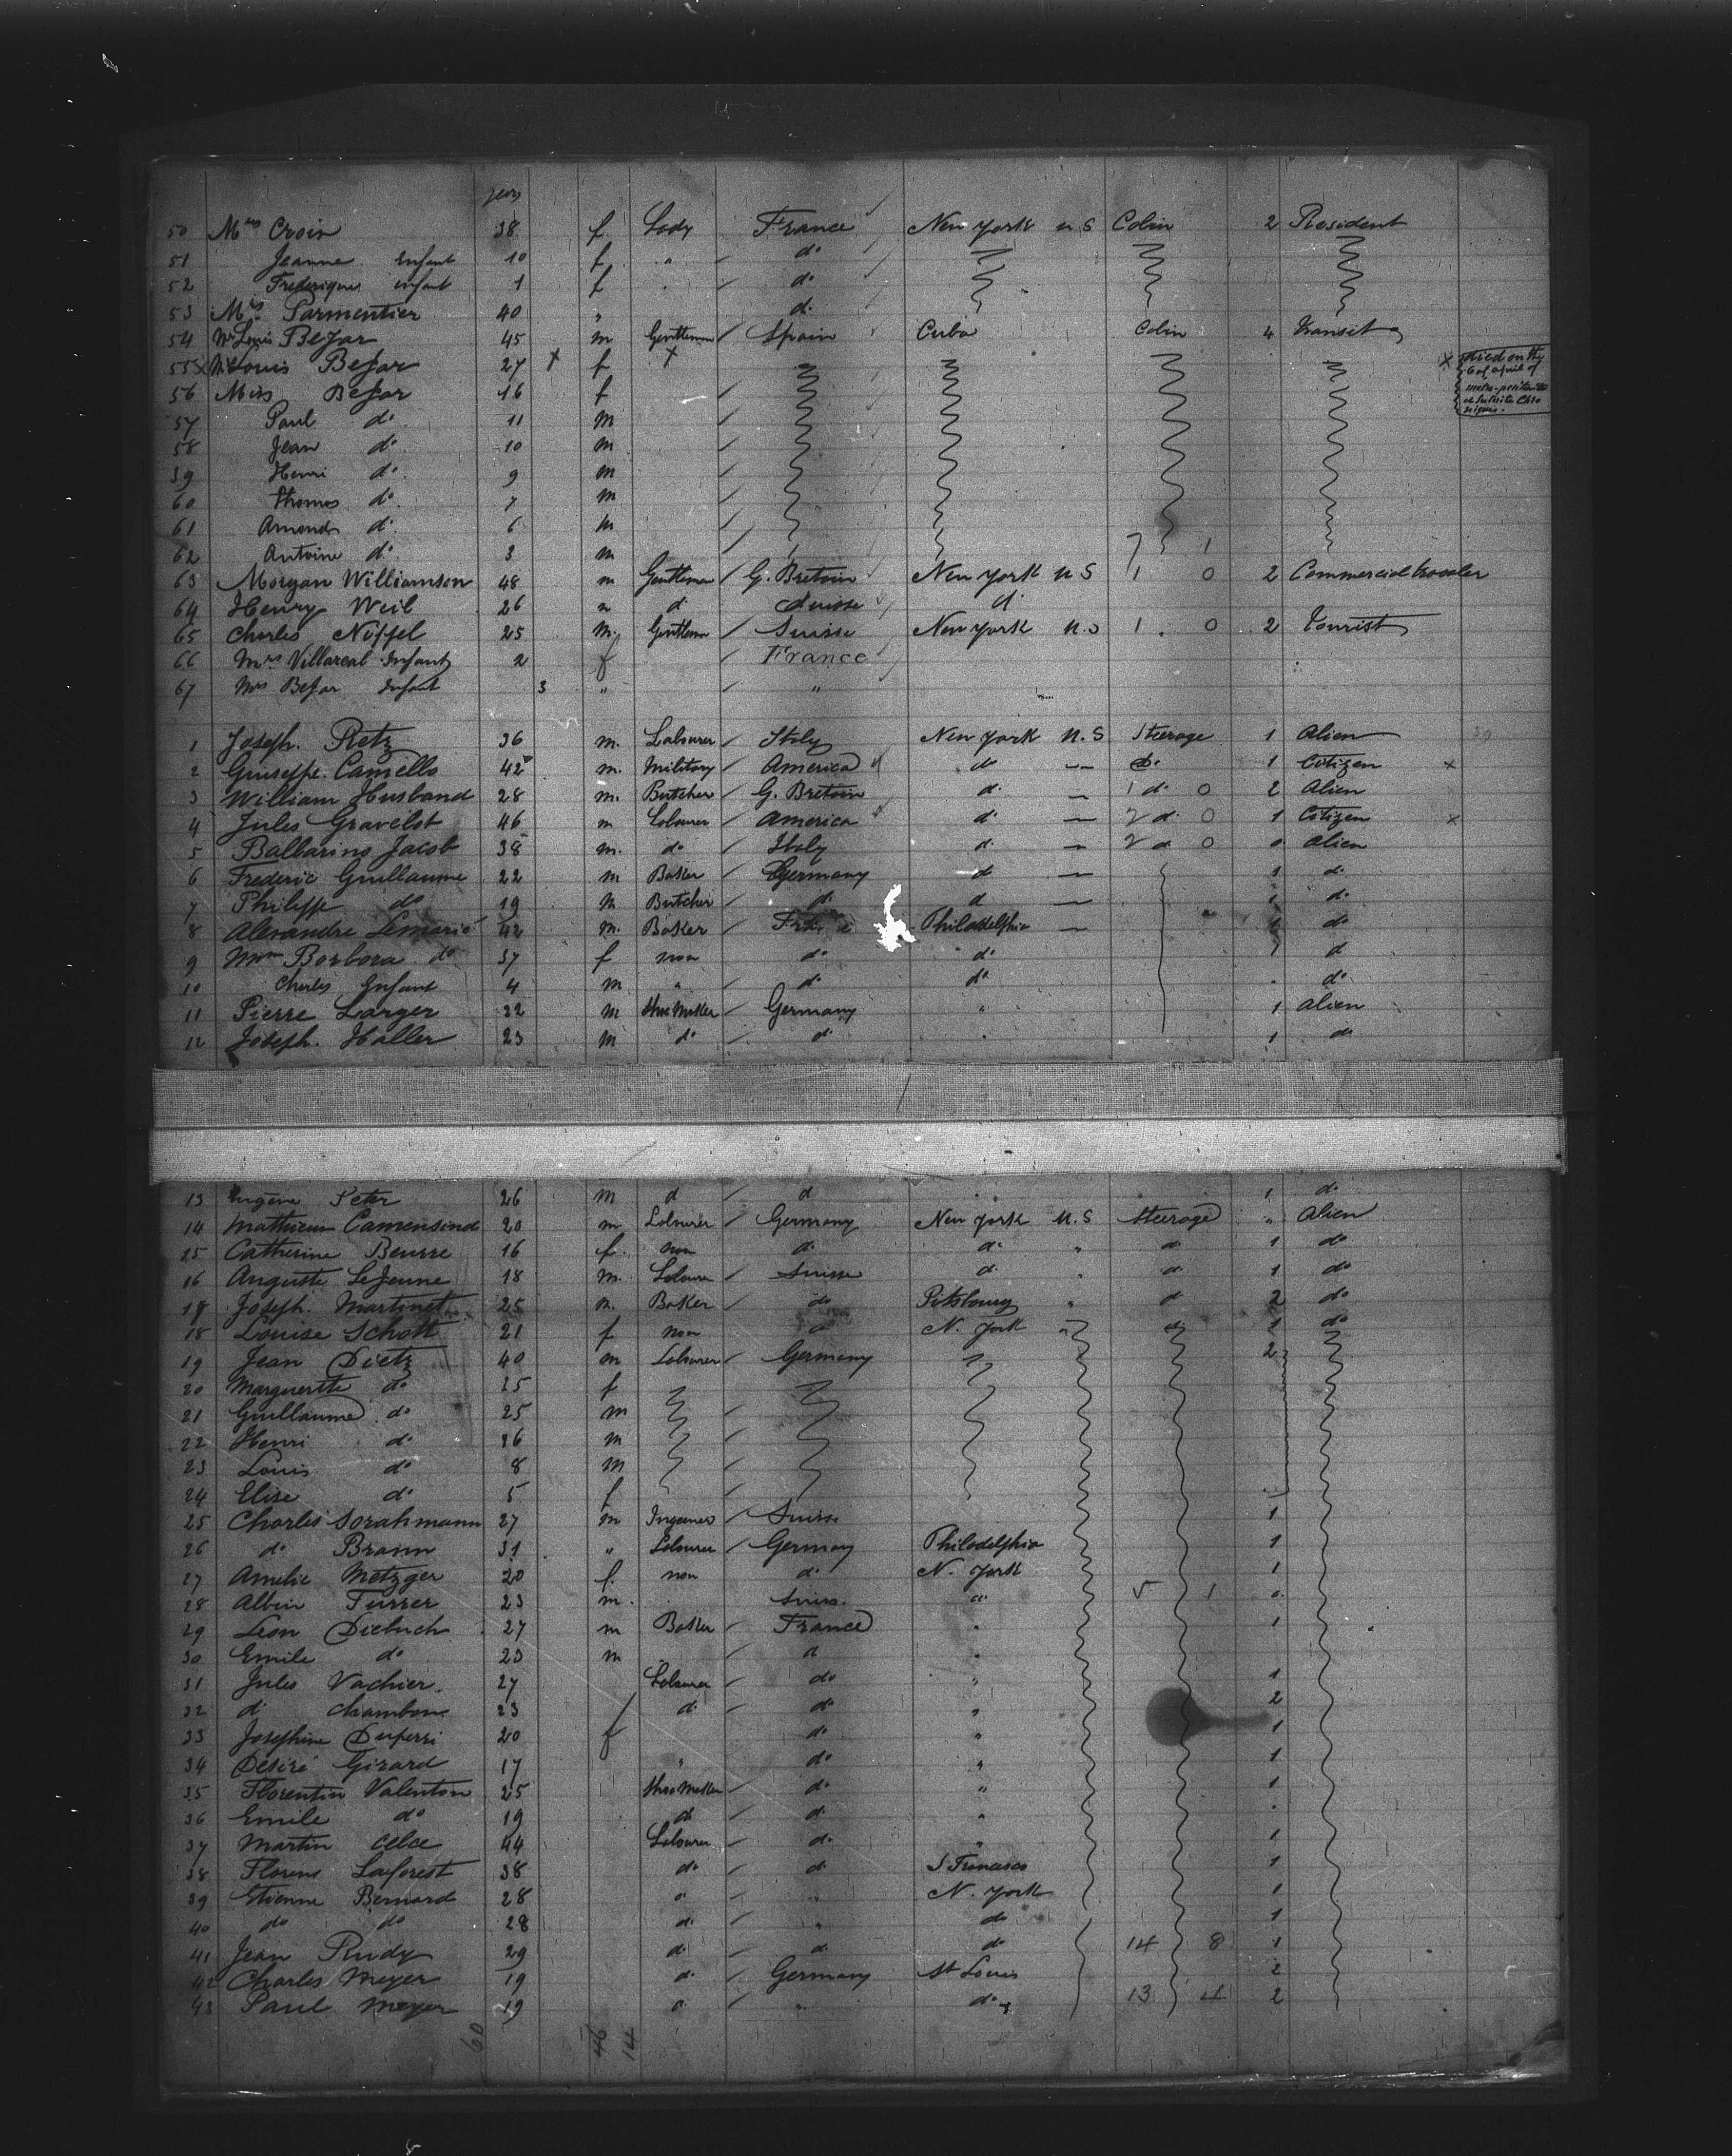 years
50 Mrs Croix 38 f Lady France New York U S Cabin 2 Resident
51 Jeanne Enfant 10 f " do
52 Frederique infant 1 f do
53 Mrs Parmentier 40 " do
54 Mr Louis Bejar 45 m Gentleman Spain Cuba Cabin 4 Transit
55 x Louis Bejar 27 x f x x died on the
6 of april of
56 Miss Bejar 16 f
57 Paul do 11 m
58 Jean do 10 m
59 Henri do 9 m
60 Thomas do 7 m
61 Amand do 6 m
62 Antoine do 3 m 7 1
63 Morgan Williamson 48 m Gentleman G. Bretain New York U S 1 0 2 Commercial traveler
64 Henry Weil 26 m d. Suisse d.
65 Charles Nüffel 25 m. Gentleman Suisse New York U.S 1 . 0 2 Tourist
66 Mrs Villareal Infant 2 f France
67 Mrs Bejar Infant 3 " "
1 Joseph. Retz 36 m. Labourer Italy New York U.S Steerage 1 Alien
2 Giuseppe. Camello 42 m. Military America do do 1 Citizen x
3 William Husband 28 m. Butcher G. Bretain d. 1 d. 0 2 Alien
4 Jules Gravelot 46 m Labourer America d. 2 d. 0 1 Citizen x
5 Ballarino Jacob 38 m. do Italy d. 2 d. 0 0 Alien
6 Frederic Guillaume 22 m Baker Germany d 1 d.
7 Philippe do 19 m Butcher d. d 1 d.
8 Alexandre Lemarié 42 m. Baker Philadelphia 1 do
9 Mme Barbara do 37 f non do do 1 d
10 Charles Enfant 4 m " do do . do
11 Pierre Larger 22 m Shoe Maker Germany " 1 alien
12 Joseph. Haller 23 m do d. . 1 do
13 Eugène Peter 26 m d d 1 do
14 Mathieu Camensind 20 m. Labourer Germany New York U.S Steerage " Alien
15 Catherine Beurre 16 f. non d. d. " d. 1 do
16 Auguste LeJeune 18 m. Labourer Suisse d. " d. 1 do
17 Joseph. Martinet 25 m. Baker do Pitsburg " d 2 do
18 Louise Schott 21 f non d N. York " d 1 do
19 Jean Dietz 40 m Labourer Germany 2
20 Marguerite do f
21 Guillaume do 25 m
22 Henri do 16 m
23 Louis do 8 m
24 Elise do 5 f
25 Charles Sorahmann 27 m Ingener Suisse 1
26 do Braun 31 " Labourer Germany Philadelphia 1
27 Amelie Metzger 20 f. non d. N. York 1
28 Albin Furrer 23 m. Suiss. " 5 1 0
29 Leon Diebuch 27 m Baker France " 1
30 Emile do 23 m d "
31 Jules Vachier. 27 Labourer do " 1
32 d. Chambon 23 d. do " 2
33 Josephine Duperri 20 f do " 1
34 Désiré Girard 17 " do " 1
35 Florentin Valenton 25 Shoe Maker do " 1
36 Emile do 19 do d. "
37 Martin Celce 44 Labourer do " 1
38 Florens Laforest 38 do d. S Francisco 1
39 Etienne Bernard 28 d. " N. York 1
40 do do 28 d. " do 1
41 Jean Rudy 29 d. d. do 14 8 1
42 Charles Meyer 19 d. Germany St Louis 2
43 Paul Meyer 19 d. " do 13 4 2
60 46 14